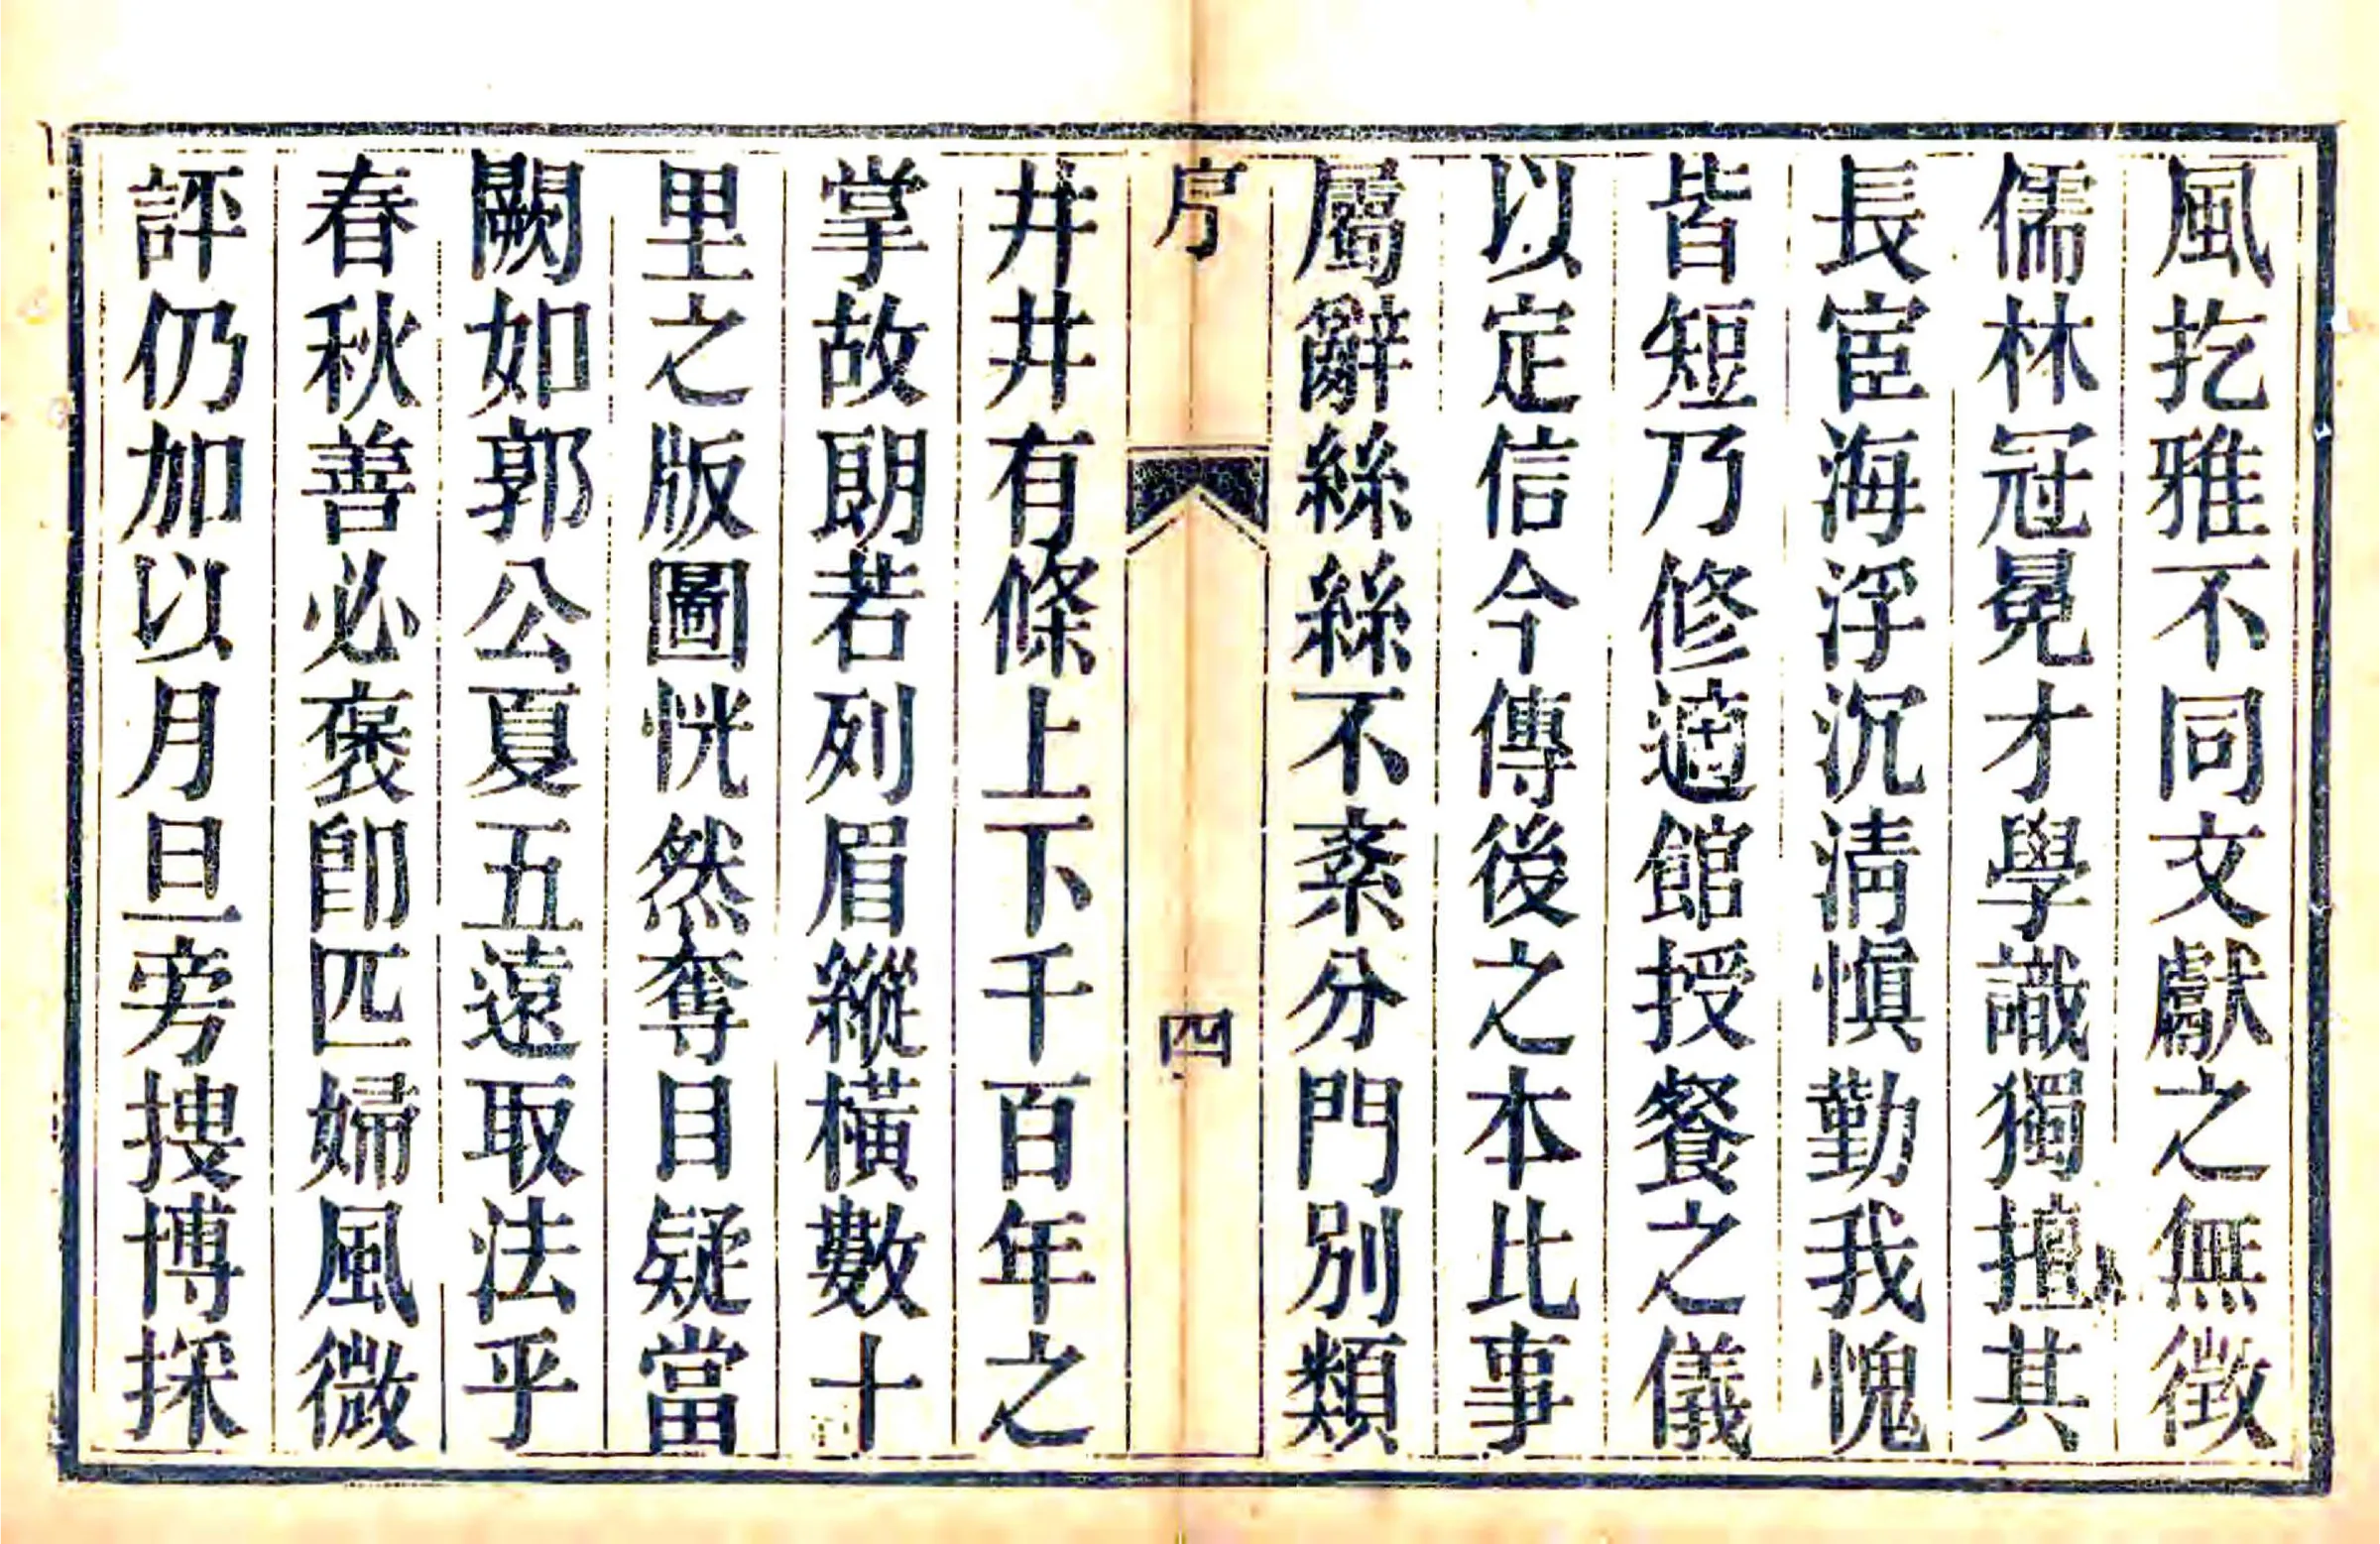 風扢雅不同文獻之無徵
儒林冠冕才學識獨擅其
長宦海浮沉淸愼勤我愧
皆短乃修適館授餐之儀
以定信今傳後之本比事
屬辭絲絲不紊分門別類
序
四
井井有條上下千百年之
掌故朗若列眉縱橫數十
里之版圖恍然奪目疑當
闕如郭公夏五遠取法乎
春秋善必褒卽匹婦風微
評仍加以月旦旁搜博採